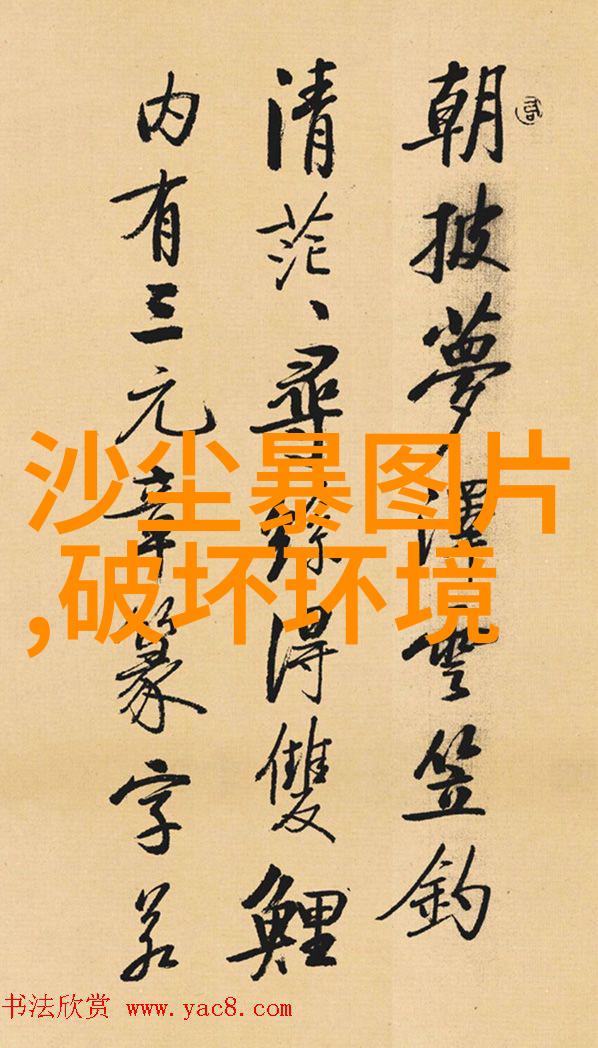 朝披夢澤雲笠釣
清茫、尋絲得雙鯉
内有三元章篆字若
沙尘暴图片
,破坏环境
书法欣赏 www.yac8.com